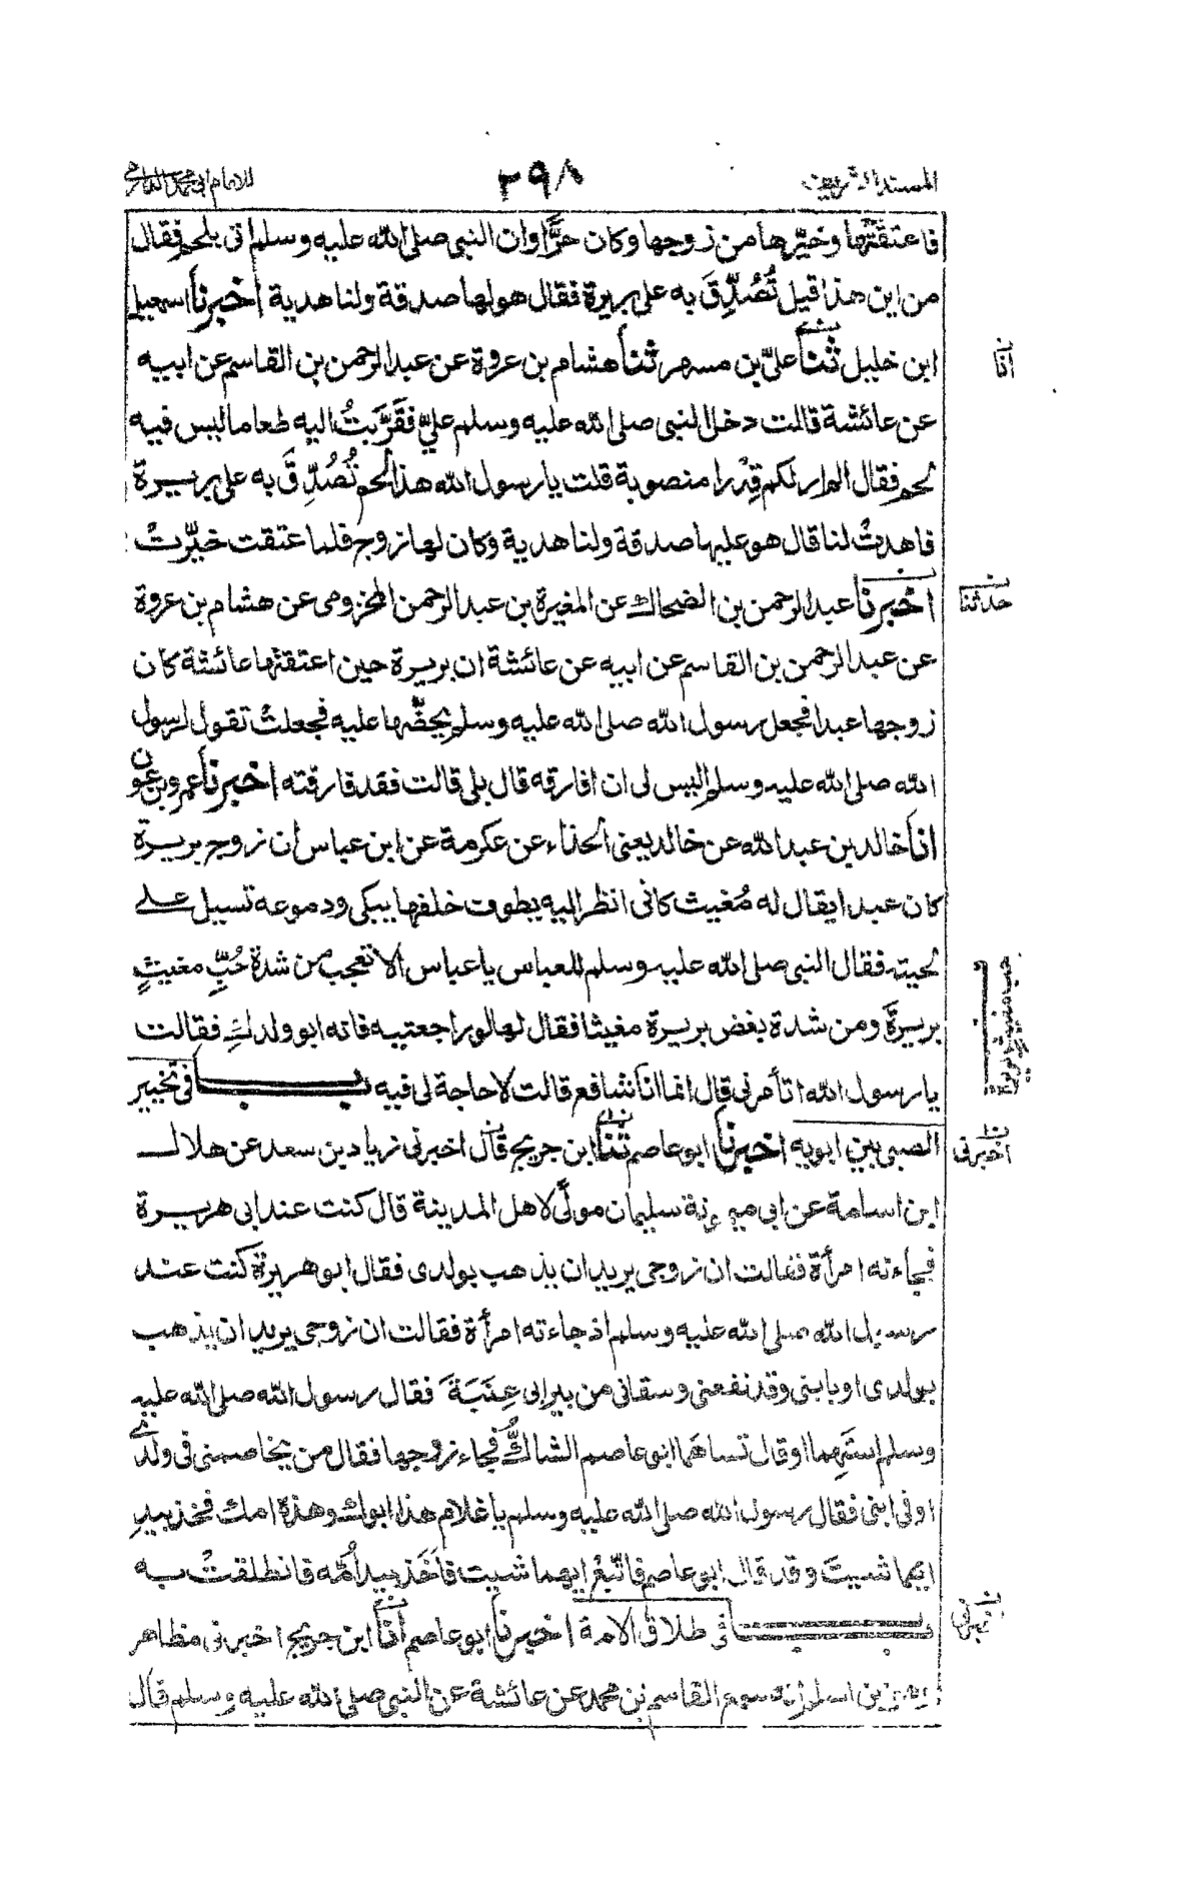 المسند الشريف ٢٩٨ للامام ابى محمد الدارمى
فاعتقتُها وخيّرها من زوجها وكان حرًّا وان النبى صلى الله عليه وسلم اتى بلحم فقال
من اين هذا قيل تُصُدِّقَ به على بريرة فقال هو لها صدقة ولنا هدية اخبرنا اسمعيل
ابن خليل ثنا علىّ بن مسهر ثنا هشام بن عروة عن عبد الرحمن بن القاسم عن ابيه
انا
عن عائشة قالت دخل النبى صلى الله عليه وسلم علىّ فقَرَّبتُ اليه طعاما ليس فيه
لحم فقال الم ار لكم قِدْرا منصوبة قلت يا رسول الله هذا لحم تُصُدِّقَ به على بريرة
فاهدتْ لنا قال هو عليها صدقة ولنا هدية وكان لها زوج فلما عتقت خيّرتْ
اخبرنا عبد الرحمن بن الضحاك عن المغيرة بن عبد الرحمن المخزومى عن هشام بن عروة
حدثنا
عن عبد الرحمن بن القاسم عن ابيه عن عائشة ان بريرة حين اعتقتها عائشة كان
زوجها عبدا فجعل رسول الله صلى الله عليه وسلم يحضّها عليه فجعلتْ تقول لرسول
الله صلى الله عليه وسلم اليس لى ان افارقه قال بلى قالت فقد فارقته اخبرنا عمرو بن عون
انا خالد بن عبد الله عن خالد يعنى الحذاء عن عكرمة عن ابن عباس ان زوج بريرة
كان عبدا يقال له مُغيث كانى انظر اليه يطوف خلفها يبكى ودموعه تسيل على
لحيته فقال النبى صلى الله عليه وسلم للعباس يا عباس الا تعجب من شدة حُبِّ مغيثٍ
حب مغيث بريرة
بريرةَ ومن شدة بغض بريرة مغيثا فقال لها لو راجعتيه فانه ابو ولدكِ فقالت
يا رسول الله اتأمرنى قال انما انا شافع قالت لا حاجة لى فيه باب فى تخيير
الصبى بين ابويه اخبرنا ابو عاصم ثنا ابن جريج قال اخبرنى زياد بن سعد عن هلال
اخبرنى
ابن اسامة عن ابى ميمونة سليمان مولًى لاهل المدينة قال كنت عند ابى هريرة
فجاءته امرأة فقالت ان زوجى يريد ان يذهب بولدى فقال ابو هريرة كنت عند
رسول الله صلى الله عليه وسلم اذ جاءته امرأة فقالت ان زوجى يريد ان يذهب
بولدى او بابنى وقد نفعنى وسقانى من بير ابى عِنَبَةَ فقال رسول الله صلى الله عليه
وسلم استَهِما او قال تساهَما ابو عاصم الشاكُّ فجاء زوجها فقال من يخاصمنى فى ولدى
او فى ابنى فقال رسول الله صلى الله عليه وسلم يا غلام هذا ابوك وهذه امك فخذ بيدِ
ايهما شيتَ وقد قال ابو عاصم فاتّبعْ ايهما شيت فاَخَذ بيد اُمّه فانطلقتْ به
باب فى طلاق الامة اخبرنا ابو عاصم انا ابن جريج اخبرنى مظاهر
بن اسلم انه سمع القاسم بن محمد عن عائشة عن النبى صلى الله عليه وسلم قال